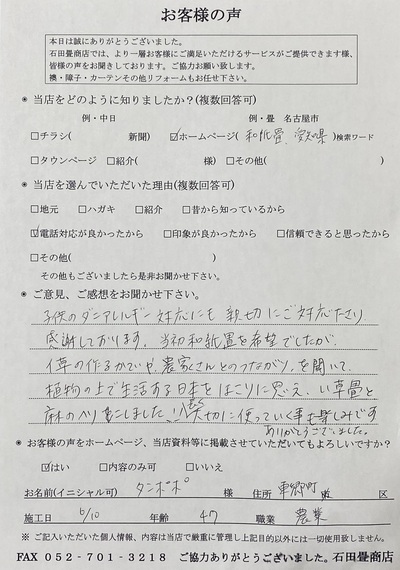 お客様の声
本日は誠にありがとうございました。
石田畳商店では、より一層お客様にご満足いただけるサービスがご提供できます様、
皆様の声をお聞きしております。ご協力お願い致します。
襖・障子・カーテンその他リフォームもお任せ下さい。
※ 当店をどのように知りましたか？(複数回答可)
例・中日 例・畳 名古屋市
□チラシ( 新聞) ☑ホームページ( 和紙畳、愛知県 )検索ワード
□タウンページ □紹介( 様) □その他( )
※ 当店を選んでいただいた理由(複数回答可)
□地元 □ハガキ □紹介 □昔から知っているから
☑電話対応が良かったから □印象が良かったから □信頼できると思ったから
□その他( )
その他もございましたら是非お聞かせ下さい。
※ ご意見、ご感想をお聞かせ下さい。
子供のダニアレルギー対応にも親切にご対応下さり
感謝しております。当初和紙畳を希望でしたが、
イ草の作るかていや、農家さんとのつながりを聞いて、
植物の上で生活する日本をほこりに思え、い草畳と
麻のヘリにしました。大切に使っていく事も楽しみです
ありがとうございました。
※ お客様の声をホームページ、当店資料等に掲載させていただいてもよろしいですか？
☑はい □内容のみ可 □いいえ
お名前(イニシャル可) タンポポ 様 住所 東郷町 区
施工日 6/10 年齢 47 職業 農業
※ ご記入いただいた個人情報、内容は当店で厳重に管理し上記目的以外には一切使用致しません。
FAX 052-701-3218 ご協力ありがとうございました。石田畳商店